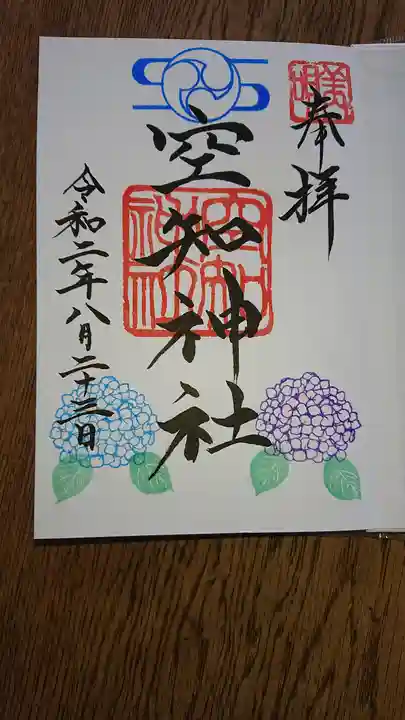 奉拝
空知神社
令和二年八月二十三日
美唄
空知神社